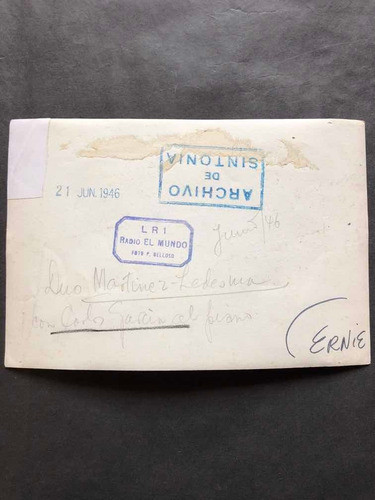 ARCHIVO
DE
SINTONIA
21 JUN. 1946
LR1
RADIO EL MUNDO
FOTO P. BELLUSO
Junio/46
Duo Martinez-Ledesma
con Carlos Garcia al piano
ERNIE